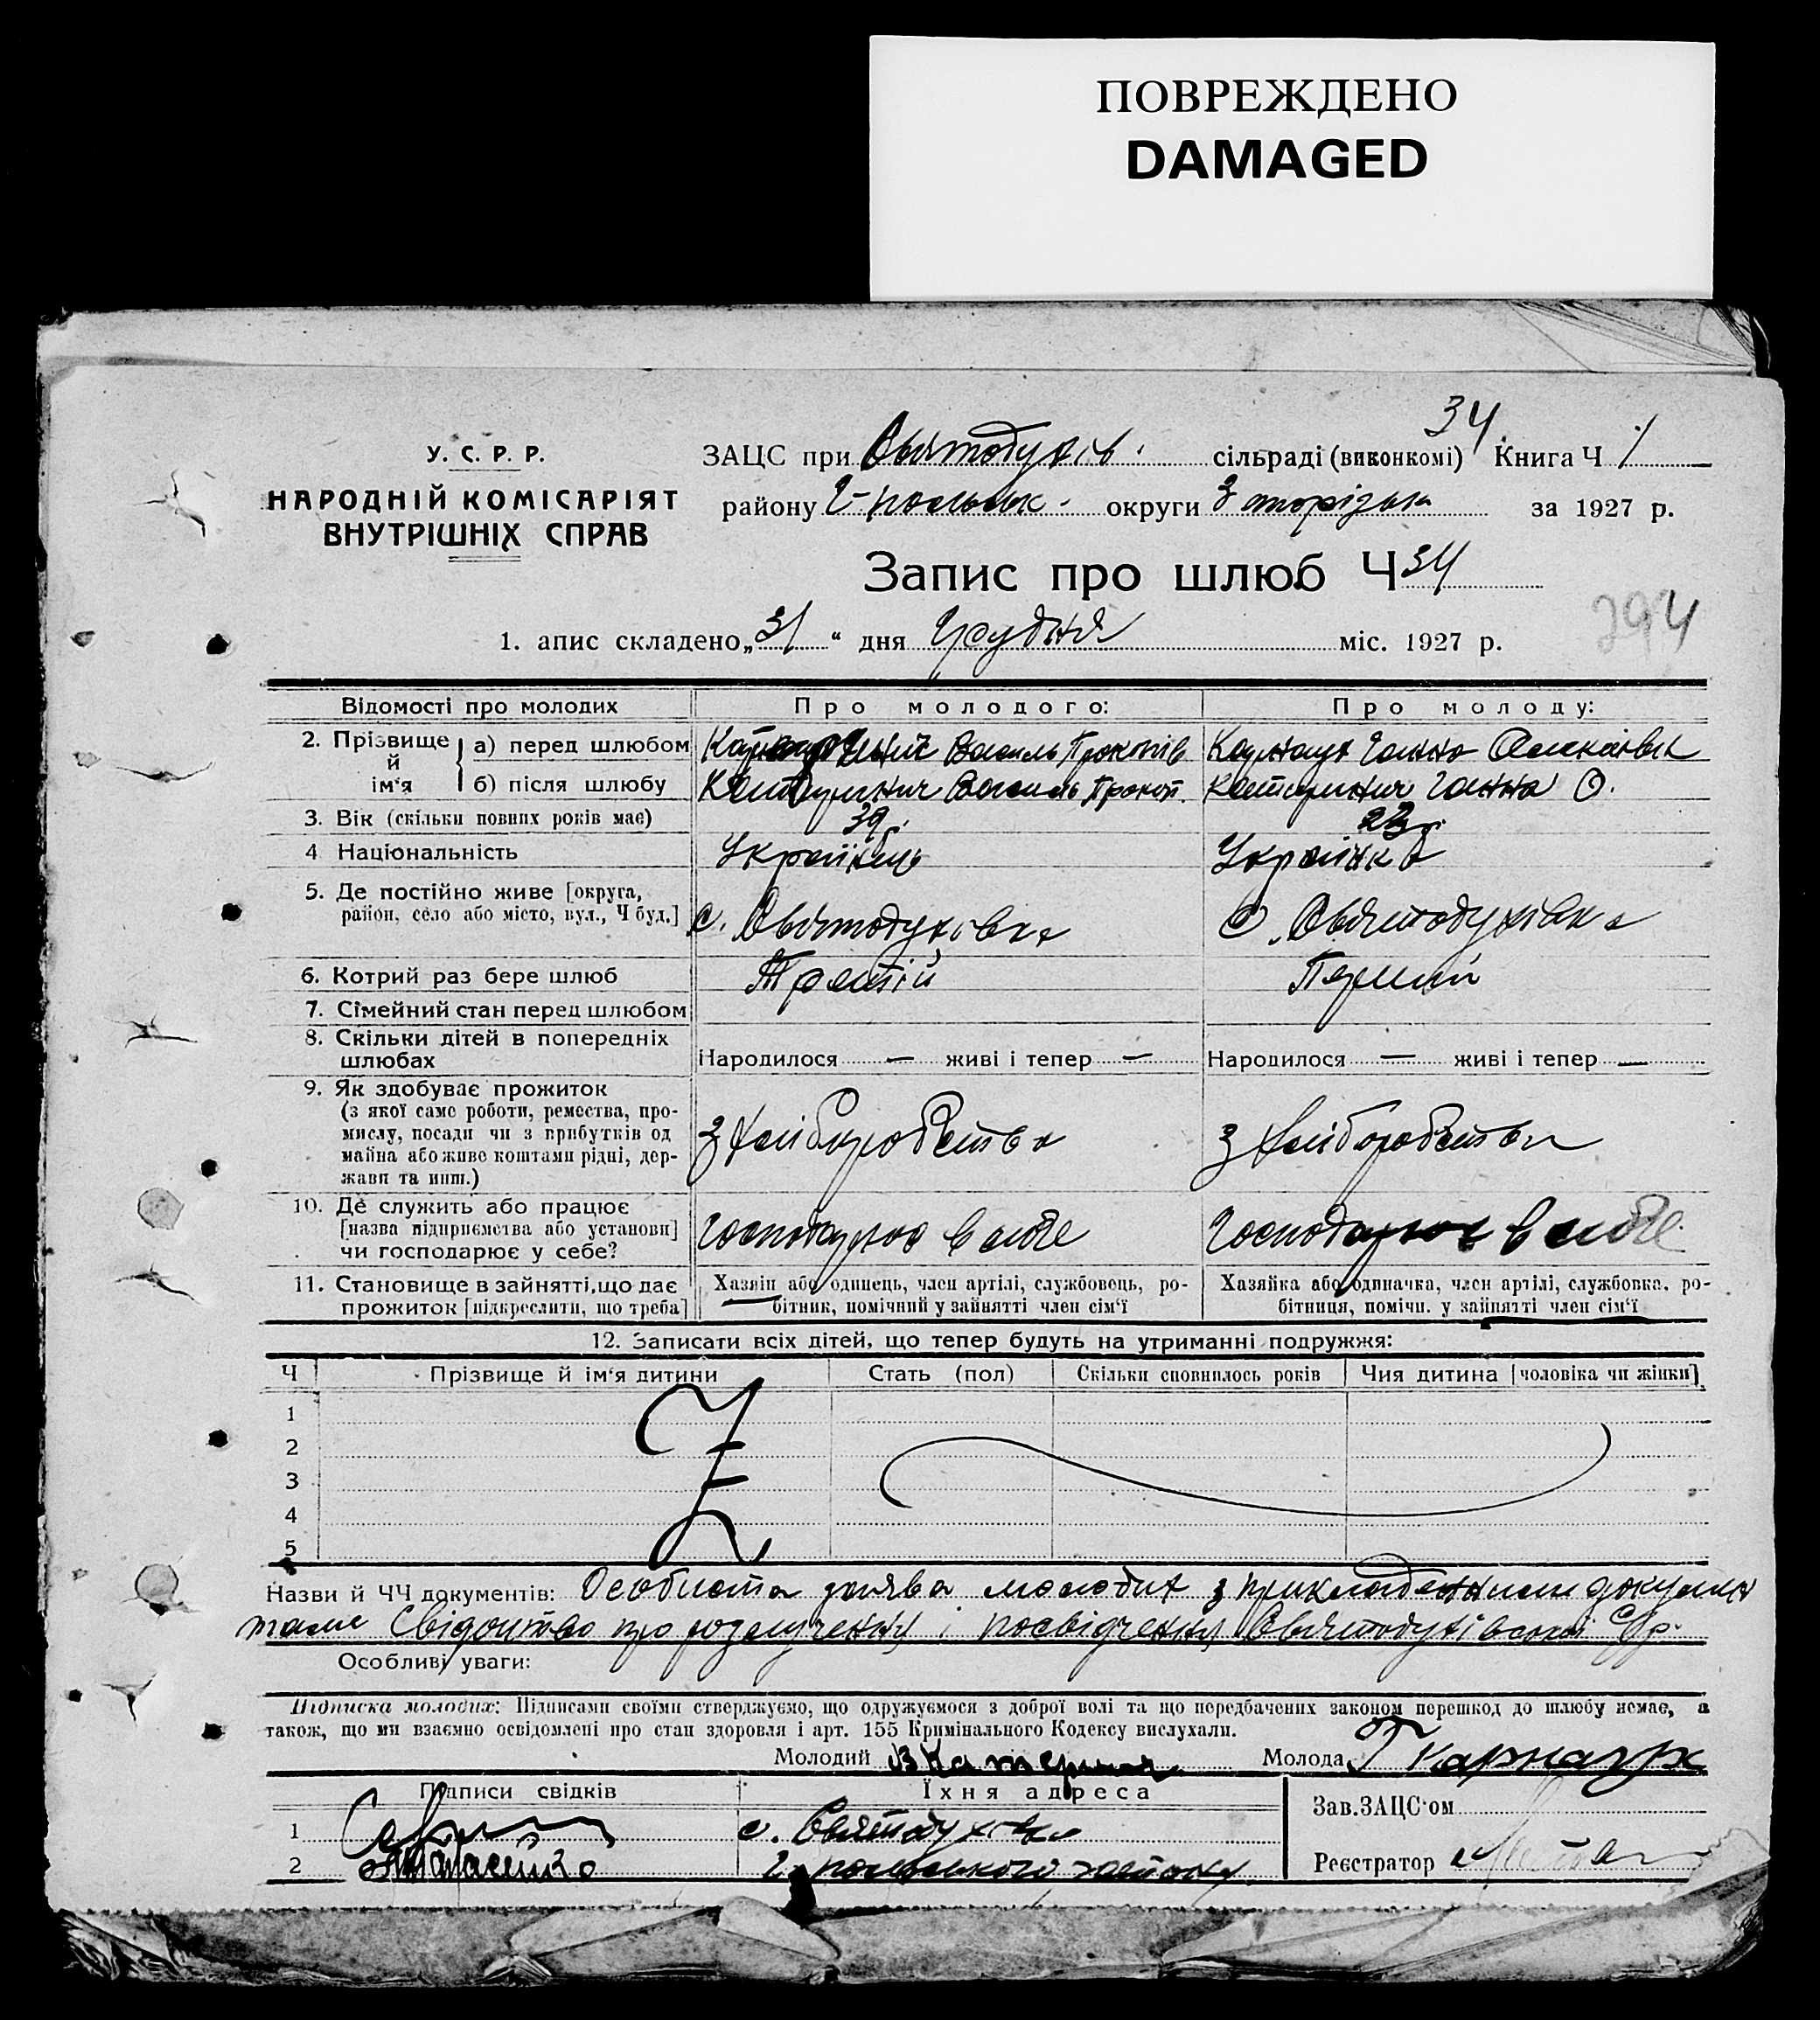 ПОВРЕЖДЕНО
DAMAGED
34
У. С. Р. Р.
НАРОДНІЙ КОМІСАРІЯТ
ВНУТРІШНІХ СПРАВ
ЗАЦС при Святодухів. сільраді (виконкомі) Книга Ч 1
району Г-польськ. округи Запорізьк за 1927 р.
Запис про шлюб Ч 34
294
1. апис складено „31“ дня Грудня міс. 1927 р.
Відомості про молодих Про молодого: Про молоду:
2. Прізвище й ім‘я
а) перед шлюбом Василь Прокопів Карнаух Ганна
б) після шлюбу Катеринич Василь Прокоп. Катеринич Ганна О.
3. Вік (скільки повних років має) 39 р. 23 р.
4 Національність Українець Українка
5. Де постійно живе [округа, район, село або місто, вул., Ч буд.] с. Святодухівка с. Святодухівка
6. Котрий раз бере шлюб Третій Перший
7. Сімейний стан перед шлюбом
8. Скільки дітей в попередніх шлюбах Народилося — живі і тепер — Народилося — живі і тепер —
9. Як здобуває прожиток
(з якої саме роботи, ремества, про-
мислу, посади чи з прибутків од
майна або живе коштами рідні, дер-
жави та инш.)
з хліборобства з хліборобства
10. Де служить або працює
[назва підприємства або установи]
чи господарює у себе?
Господарює в себе Господарює в себе
11. Становище в зайнятті, що дає
прожиток [підкреслити, що треба]
Хазяїн або одинець, член артілі, службовець, ро-
бітник, помічний у зайнятті член сім‘ї
Хазяйка або одиначка, член артілі, службовка, ро-
бітниця, помічн. у зайнятті член сім‘ї
12. Записати всіх дітей, що тепер будуть на утриманні подружжя:
Ч Прізвище й ім‘я дитини Стать (пол) Скільки сповнилось років Чия дитина [чоловіка чи жінки]
1
2
3
4
5
Назви й ЧЧ документів: Особиста заява молодих з прикладенням докумен
тами Свідоцтво про розлучення і посвідчення Святодухівської С/р.
Особливі уваги:
Підписка молодих: Підписами своїми стверджуємо, що одружуємося з доброї волі та що передбачених законом перешкод до шлюбу немає, а
також, що ми взаємно освідомлені про стан здоровля і арт. 155 Кримінального Кодексу вислухали.
Молодий В Катерин Молода Г Карнаух
Підписи свідків Їхня адреса
1 с. Святодухівка
2 Тарасенко Г-польського району
Зав. ЗАЦС‘ом
Реєстратор